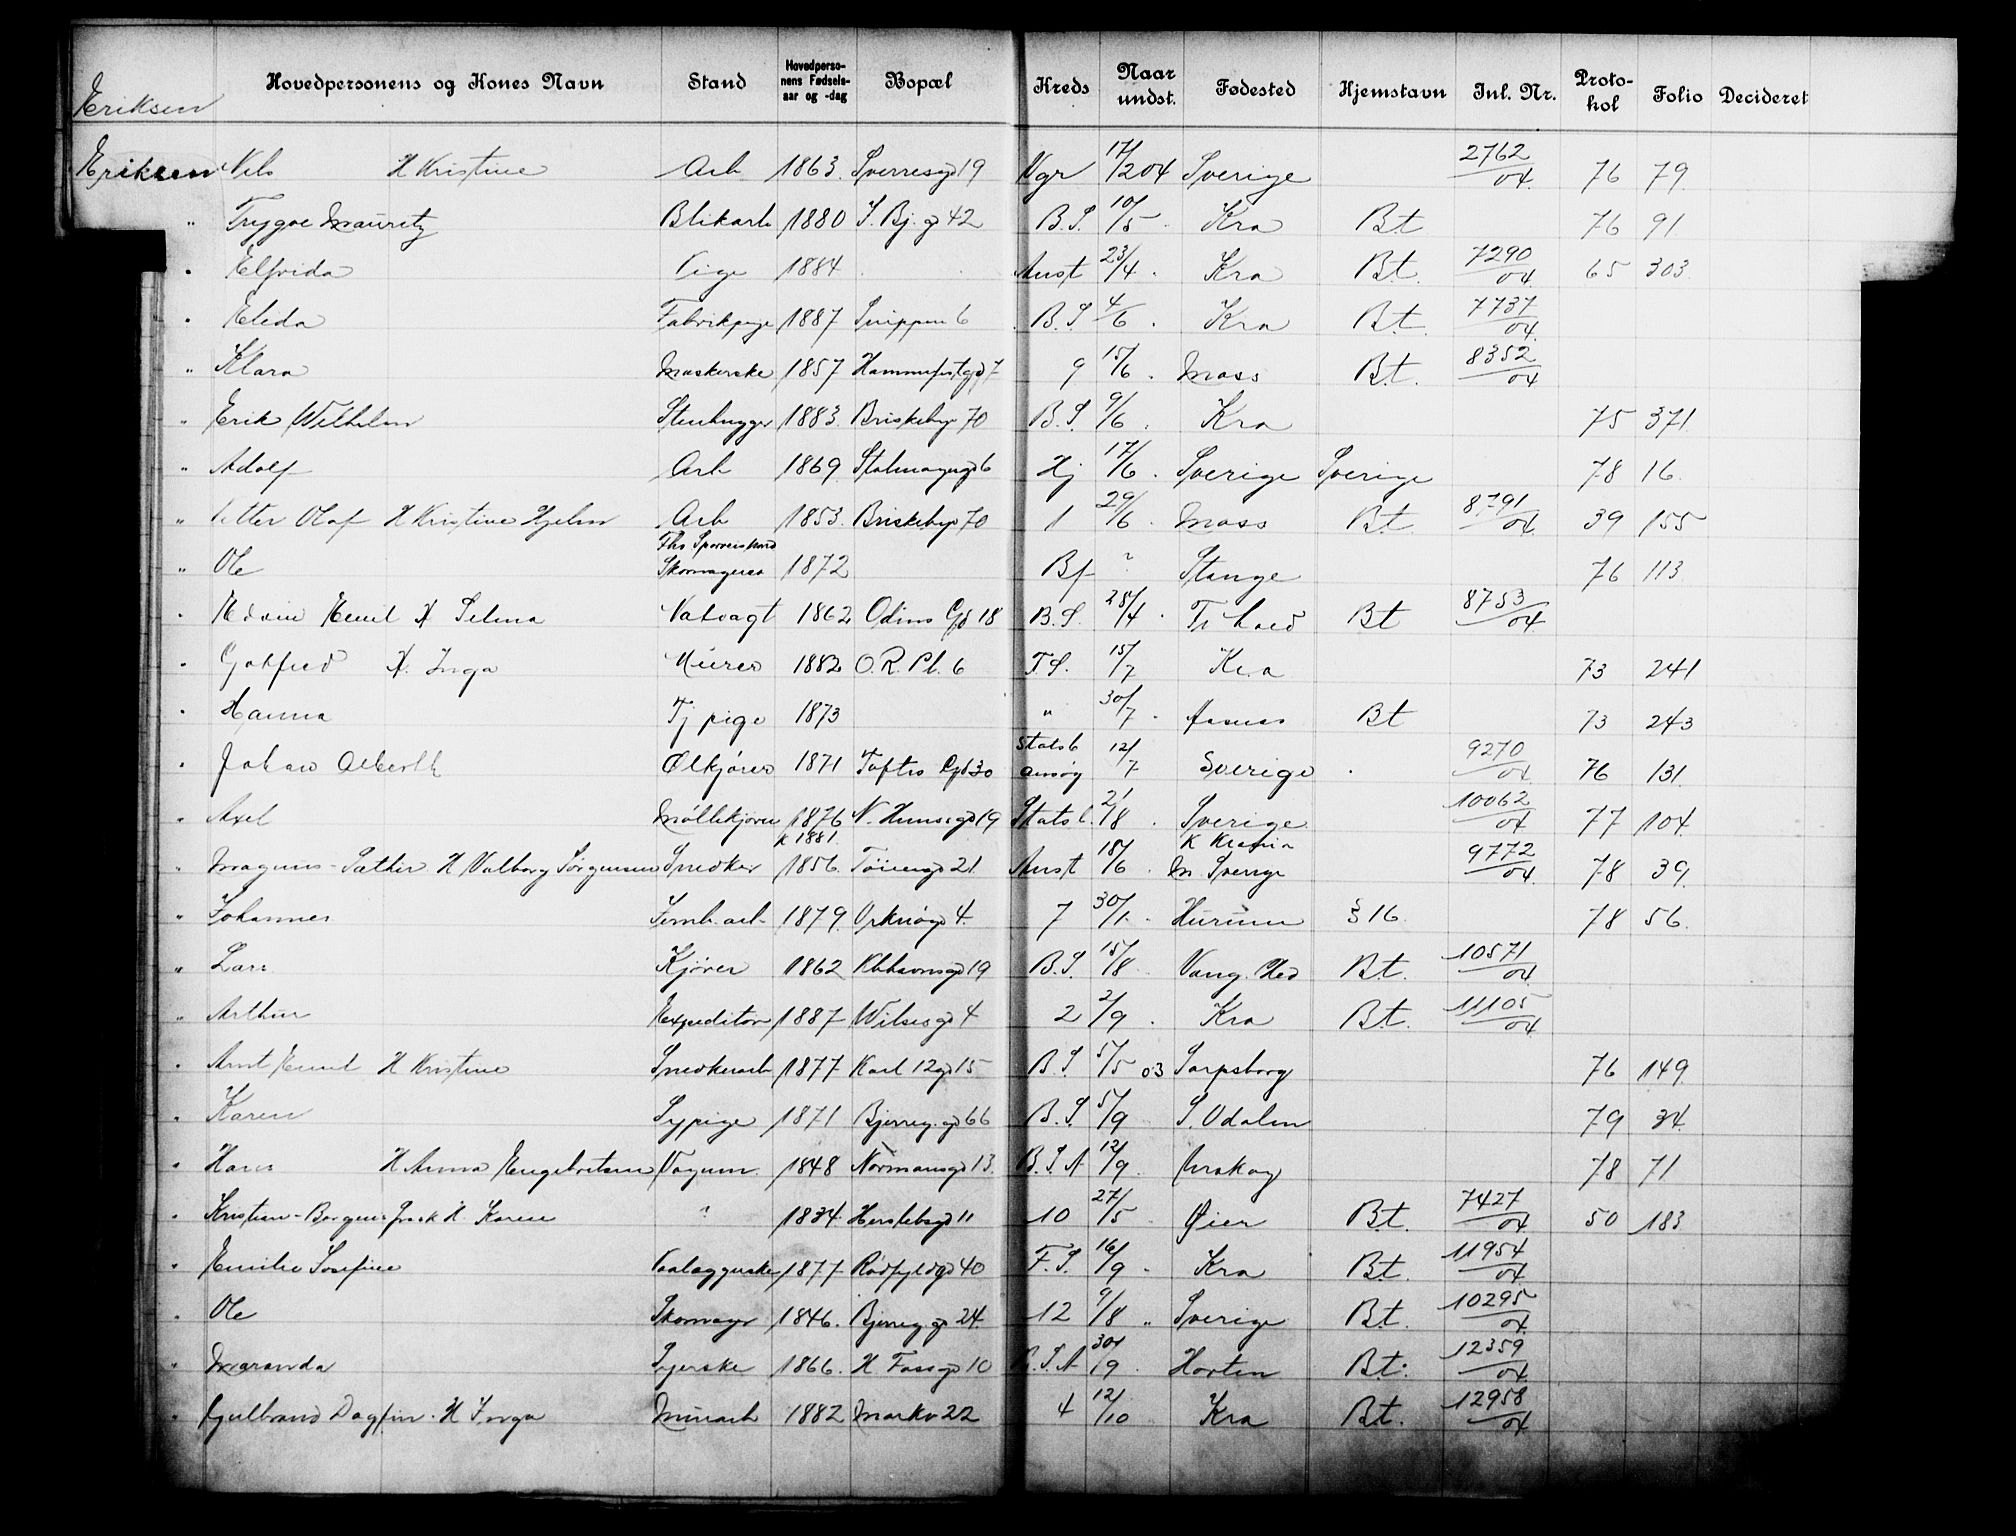 Eriksen Hovedpersonens og Kones Navn Stand Hovedperso-nens Fødsels-aar og -dag Bopæl Kreds Naar undst. Fødested Hjemstavn Inl. Nr. Proto-kol Folio Decideret
Eriksen Nils H Kristine Arb 1863. Sverresgd 19 Vgr 17/2 04 Sverige 2762/04. 76 79.
" Trygve Mauritz Blikarb 1880 S. Bj. g 42 B.S. 10/5 . Kra Bt 76 91
" Elfrida Pige 1884 Anst 23/4 . Kra Bt. 7290/04. 65 303.
" Eleda Fabrikpige 1887 Snippen 6 B.S 4/6 . Kra Bt. 7737/04.
" Klara Maskerske 1857 Hammerfestgd 7 9 15/6 . Moss Bt. 8352/04
" Erik Wilhelm Stenhugger 1883. Briskebyv 70 B.S. 9/6 . Kra 75 371
" Adolf Arb 1869. 6 Hj 17/6 . Sverige Sverige 78 16.
" Petter Olaf H Kristine Hjelm Arb 1853. Briskebyv 70 1 29/6 . Moss Bt. 8791/04. 39 155
" Ole Fhv Sporveiskusk Skomager 1872 Bf ? Stange 76 113
" Edvin Emil H Selma Natvagt 1862 Odins Gd 18 B.S. 25/4 . Tr.hald Bt 8753/04.
" Gotfred H. Inga Murer 1882 O.R. Pl. 6 T.S. 15/7 Kra 73 241
" Hanna Tj pige 1873 " 30/7 . Bt 73 243
" Johan Alberth Ølkjører 1871 Toftes Gd 30 Statsb ansøg 12/7 Sverige . 9270/04 76 131.
" Axel Møllekjører 1876 N. Hunsgd 19 Statsb. 2/8 . Sverige 10062/04 77 104.
" Magnus-Petter H Valborg Jørgensen Snedker K 1881. 1856. Tøiengd 21. Anst 18/6 . K Krania M. Sverige 9772/04. 78 39.
" Johannes Jernb. arb. 1879. Orknøgd 4. 7 30/1. . Hurum § 16. 78 56.
" Lars Kjører 1862 Kbhavnsgd 19 B.S. 15/8 .. Vang. Hed Bt. 10571/04.
" Arthur Expeditør 1887 Wilsesgd 4 2 2/9 . Kra Bt. 11105/04.
" Arnt Emil H Kristine Snedkerarb 1877 Karl 12gd 15 B.S 5/5 03 Sarpsborg 76 149.
" Karen Sypige 1871 Bjerreg.gd 66 B.S. 5/9 S. Odalen 79 34.
" Hans H Anna Engebretsen Vognm. 1848 Normansgd 13. B.S.A 12/9 . Urskog 78 71
" Kristian H. Karen " 1834. Herslebsgd 11 10 27/5 . Øier Bt. 7427/04. 50 183
" Emilie Josefine 1877 Rødfyldgd 40 F.S. 16/9 . Kra Bt. 11954/04.
" Ole Skomager 1846. Bjerreg.gd 24. 12 9/8 " Sverige Bt. 10295/04.
" Maranda Syerske 1866. H Fossgd 10 B.S.A 30/9 . Horten Bt. 12359/04.
" Gulbrand Dagfin. H Inga Murarb 1882 Markv 22 4 12/10 Kra Bt. 12958/04.